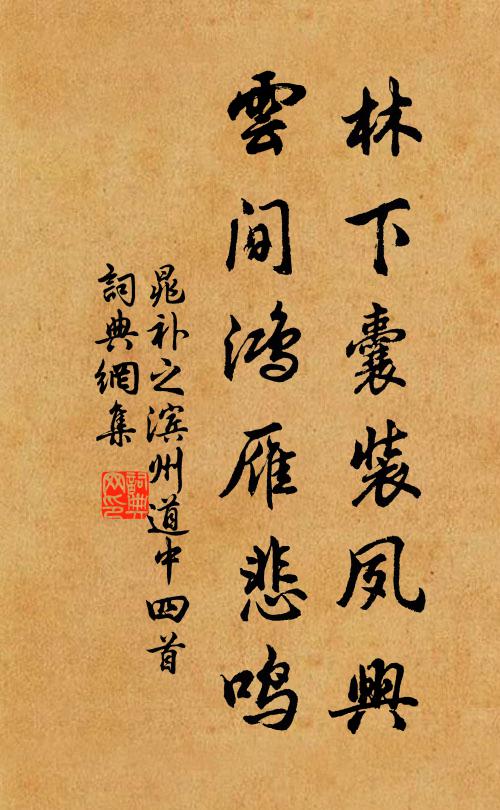 林下囊裝夙興
雲間鴻雁悲鳴
晁补之滨州道中四首
詞典網集
詞典网印